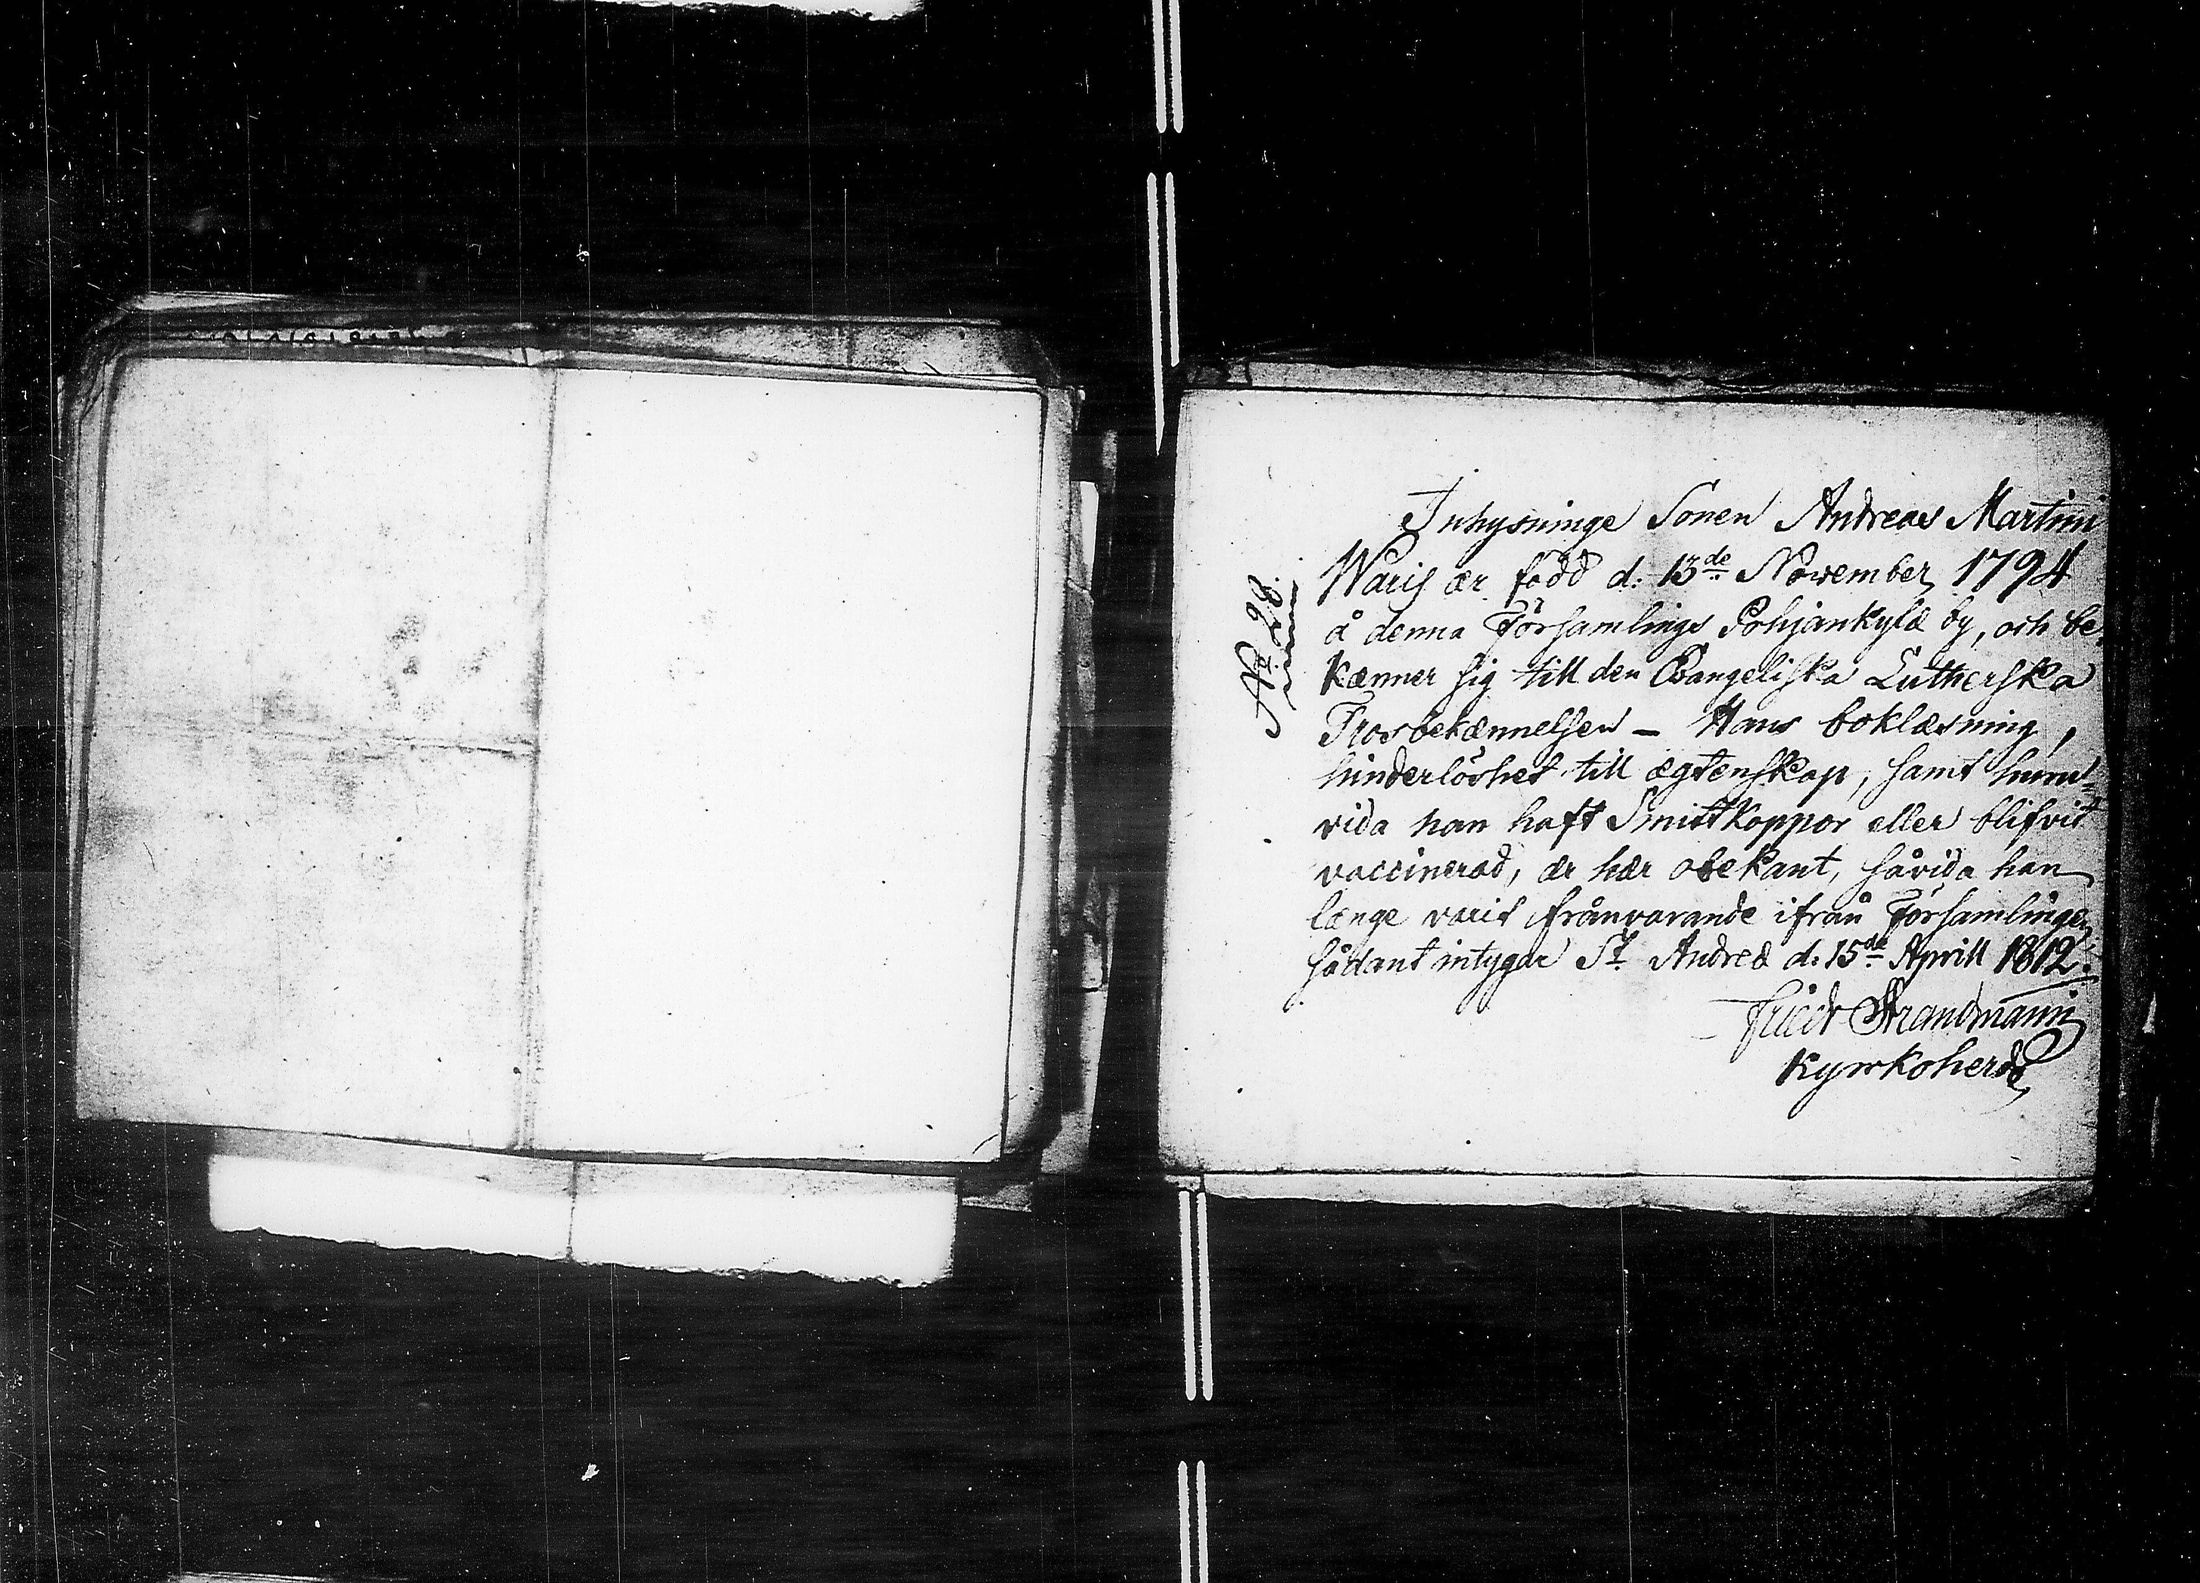 No 28.
Inhysninge Sonen Andreas Martini
Waris ær född d: 13de November 1794
å denna Församlings Pohjankylæ by, och be
kænner sig till den Evangeliska Lutherska
Trosbekænnelsen – Hans boklæsning,
hinderlöshet till ægtenskap, samt huru=
vida han haft Smittkoppor eller blifvit
vaccinerad, ær hær obekant, såvida han
længe varit frånvarande ifrån Församlingen,
sådant intygar St. Andreæ d. 15de Aprill 1812.
Friedr Strandmann
Kyrkoherde